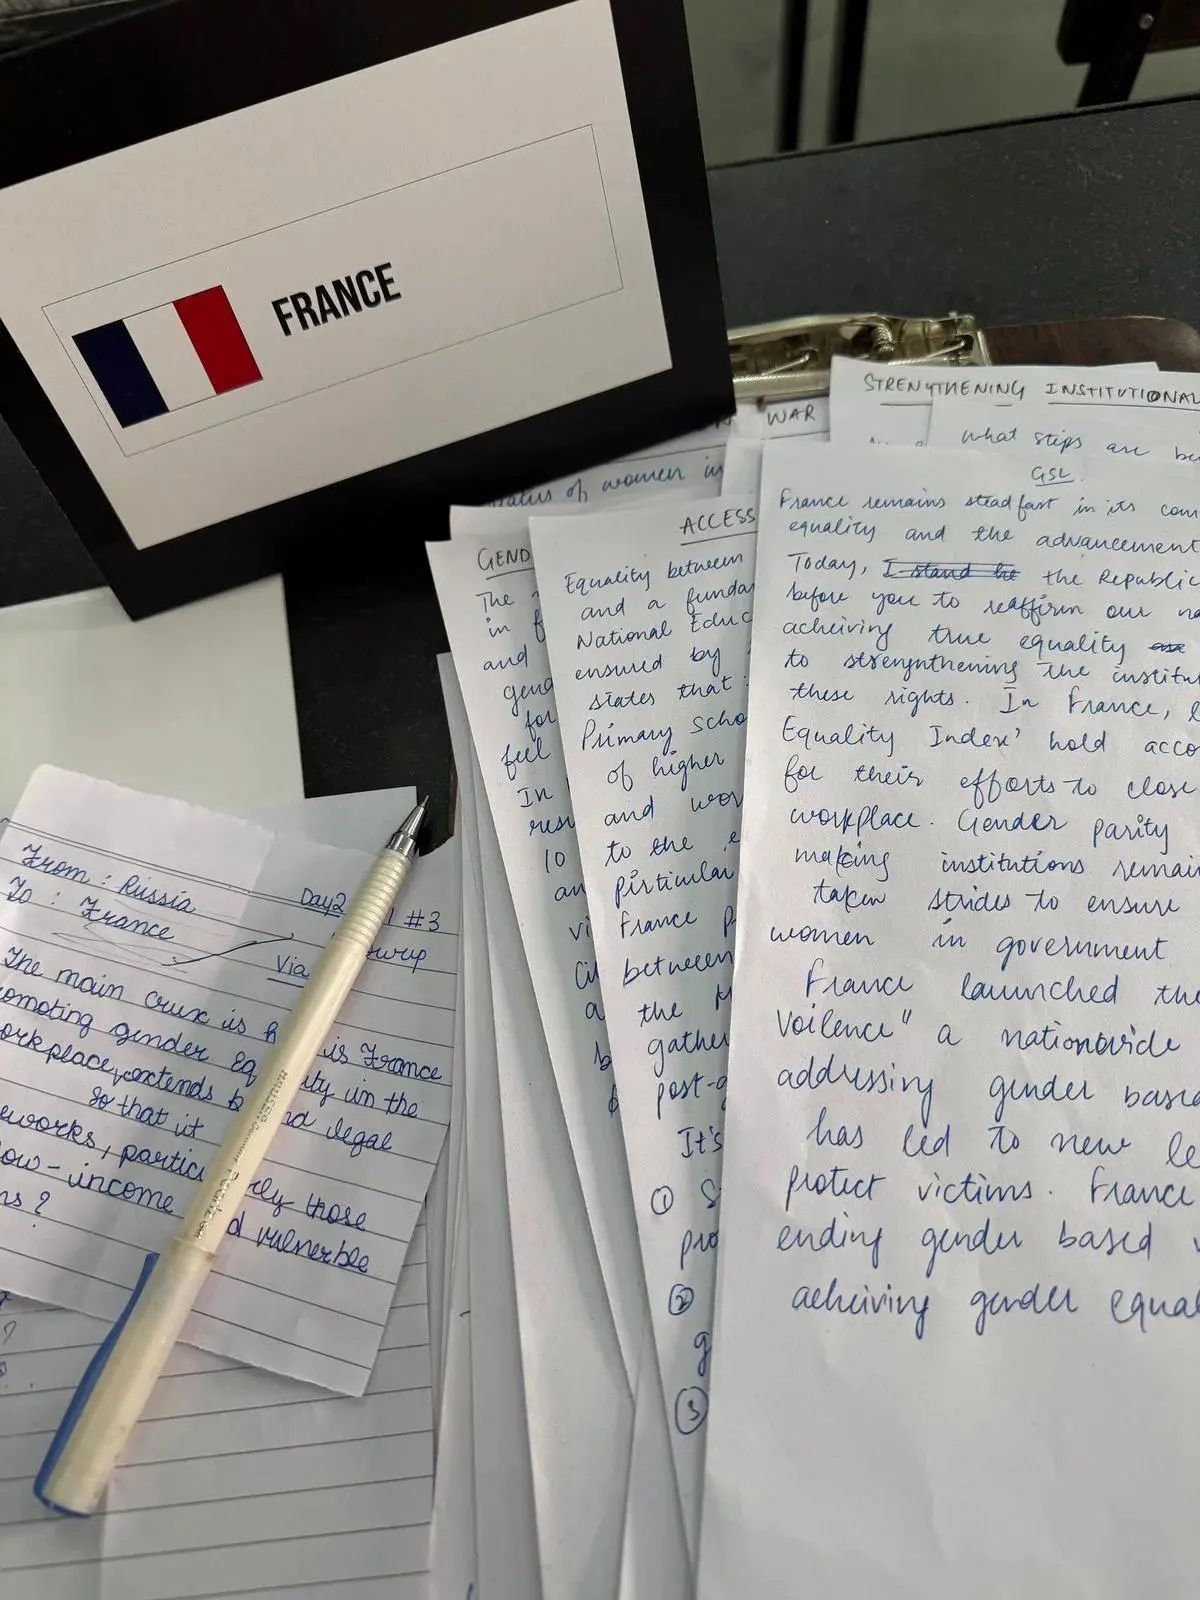 FRANCE
WAR
status of women in
STRENYTHENING INSTITUTIONAL
what steps are be
GSL
France remains steadfast in its com
equality and the advancement
Today, I stand he the Republic
before you to reaffirm our na
acheiving true equality
to strenynthening the institu
these rights. In France, l
Equality Index' hold acco
for their efforts to close
workplace. Gender parity
making institutions remain
taken strides to ensure
women in government
France launched the
Voilence" a nationwide
addressing gender based
has led to new le
protect victims. France
ending gender based v
acheiving gender equal
ACCESS
Equality between
and a funda
National Educ
ensured by
states that
Primary Scho
of higher
and wor
to the e
pirticular
France p
between
the M
gather
post-g
It's
① S
pro
②
g
③
GEND
The
in f
and
gend
for
feel
In
resu
10
an
vi
Cit
a
b
From : Russia
To : France
Day2 #3
Via
The main crux is h is France
omoting gender eq ity in the
orkplace, extends b nd legal
so that it
eworks, particu rly those
ow-income d vulnerble
ns ?